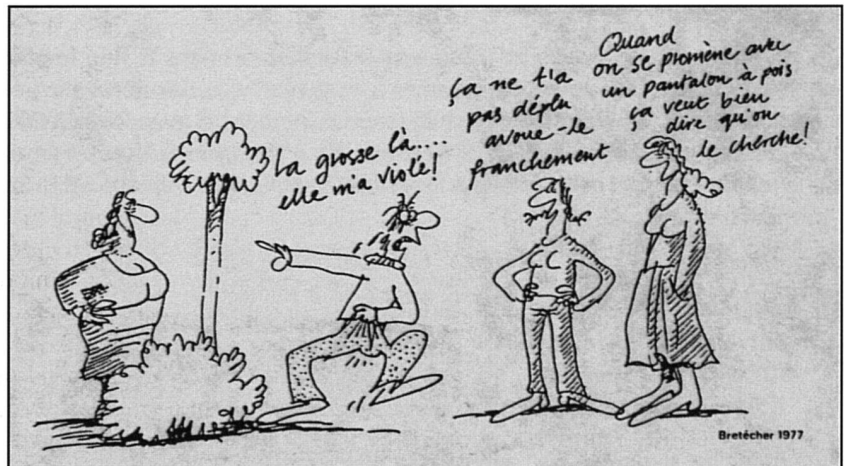 La grosse là....
elle m'a violé!
ça ne t'a
pas déplu
avoue-le
franchement
Quand
on se promène avec
un pantalon à pois
ça veut bien
dire qu'on
le cherche!
Bretécher 1977